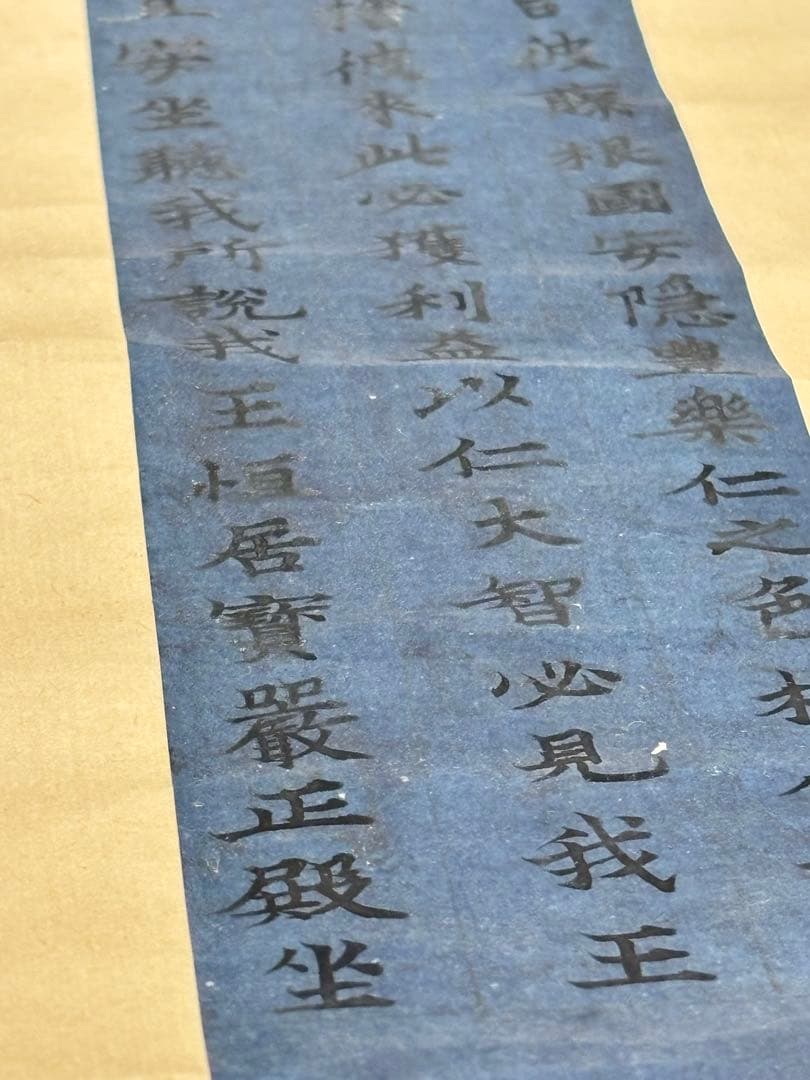 波根國安隱豐樂仁之色
彼來此必獲利益以仁大智必見我王
安坐聽我所說我王恒居寶嚴正殿坐